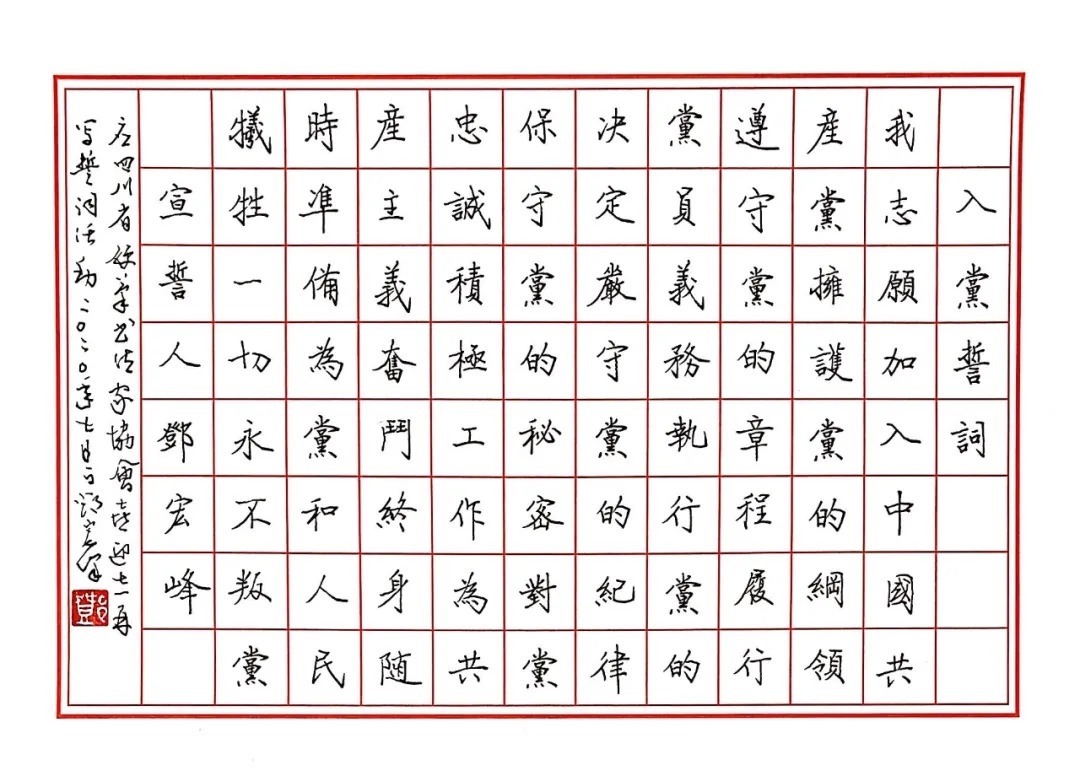 入黨誓詞
我志願加入中國共
産黨擁護黨的綱領
遵守黨的章程履行
黨員義務執行黨的
决定嚴守黨的紀律
保守黨的秘密對黨
忠誠積極工作為共
産主義奮鬥終身随
時準備為黨和人民
犧牲一切永不叛黨
宣誓人鄧宏峰
應四川省硬筆書法家協會喜迎七一再
写誓詞活動二〇二〇年七月一日鄧宏峰